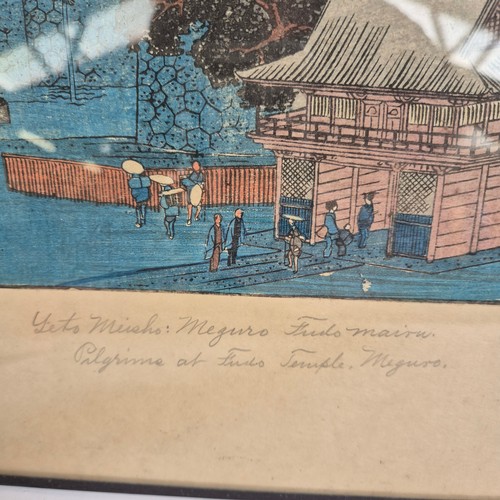 Yeto Meisho: Meguro Fudo mairu.
Pilgrims at Fudo Temple, Meguro.